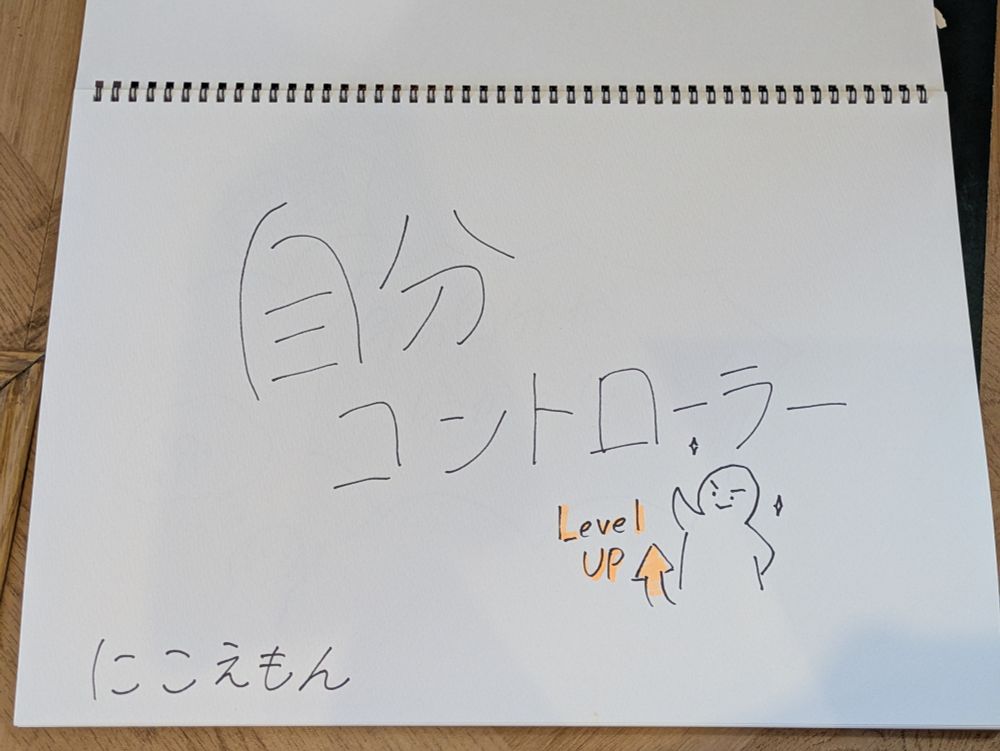 自分
コントローラー
Level
UP
にこえもん